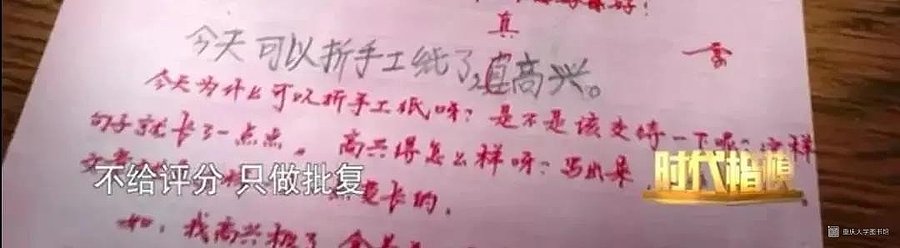 真
今天可以折手工纸了,真高兴。
今天为什么可以折手工纸呀?是不是该交待一下呢?这样
句子就长了一点点。高兴得怎么样呀?写出来
文章
变长的。
不给评分 只做批复
时代楷模
如,我高兴极了
重庆大学图书馆